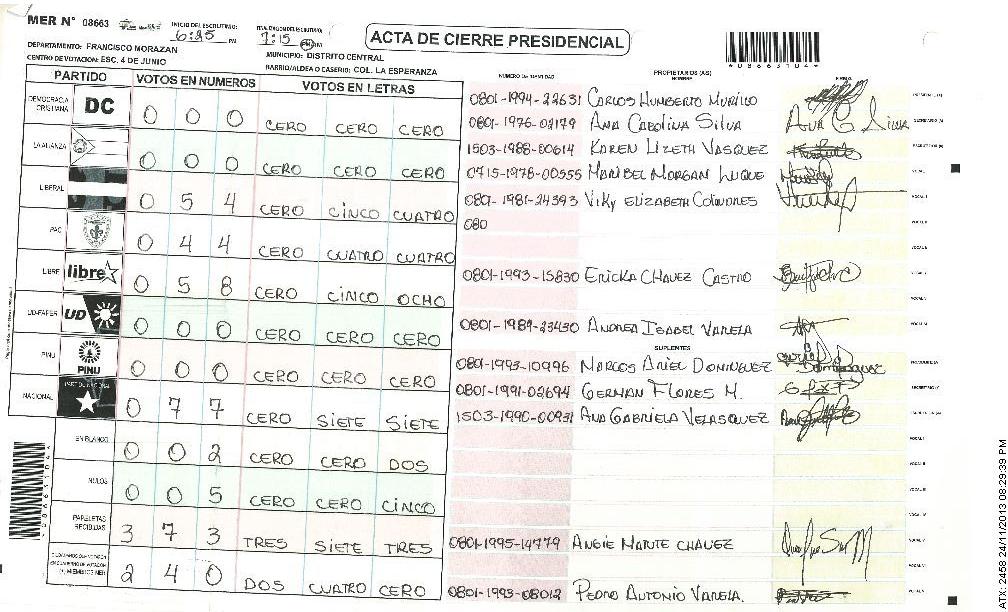 MER N° 08663
INICIO DEL ESCRUTINIO:
6:25 PM
7:15 PM
ACTA DE CIERRE PRESIDENCIAL
*08663104*
DEPARTAMENTO: FRANCISCO MORAZAN
MUNICIPIO: DISTRITO CENTRAL
CENTRO DE VOTACION: ESC. 4 DE JUNIO
BARRIO/ALDEA O CASERIO: COL. LA ESPERANZA
PARTIDO VOTOS EN NUMEROS VOTOS EN LETRAS
NUMERO DE IDENTIDAD PROPIETARIOS (AS) NOMBRE FIRMA
DEMOCRACIA CRISTIANA DC 0 0 0 CERO CERO CERO
LA ALIANZA 0 0 0 CERO CERO CERO
LIBERAL 0 5 4 CERO CINCO CUATRO
PAC 0 4 4 CERO CUATRO CUATRO
LIBRE libre 0 5 8 CERO CINCO OCHO
UD-FAPER UD 0 0 0 CERO CERO CERO
PINU PINU 0 0 0 CERO CERO CERO
NACIONAL 0 7 7 CERO SIETE SIETE
EN BLANCO 0 0 2 CERO CERO DOS
NULOS 0 0 5 CERO CERO CINCO
PAPELETAS RECIBIDAS 3 7 3 TRES SIETE TRES
2 4 0 DOS CUATRO CERO
0801-1994-22631 CARLOS HUMBERTO MURILLO
0801-1976-02179 ANA CAROLINA SILVA
1503-1988-00614 KAREN LIZETH VASQUEZ
0715-1978-00555 MARIBEL MORGAN LUQUE
0801-1981-24393 VIKY ELIZABETH COLINDRES
080
0801-1993-15830 ERICKA CHAVEZ CASTRO
0801-1989-23430 ANDREA ISABEL VARELA
SUPLENTES
0801-1993-10996 MARCOS ARIEL DOMINGUEZ
0801-1991-02694 GERMAN FLORES M.
1503-1990-00931 ANA GABRIELA VELASQUEZ
0801-1995-14779 ANGIE MARTE CHAVEZ
0801-1993-08012 PEDRO ANTONIO VARELA.
ATX 2458 24/11/2013 08:29:39 PM